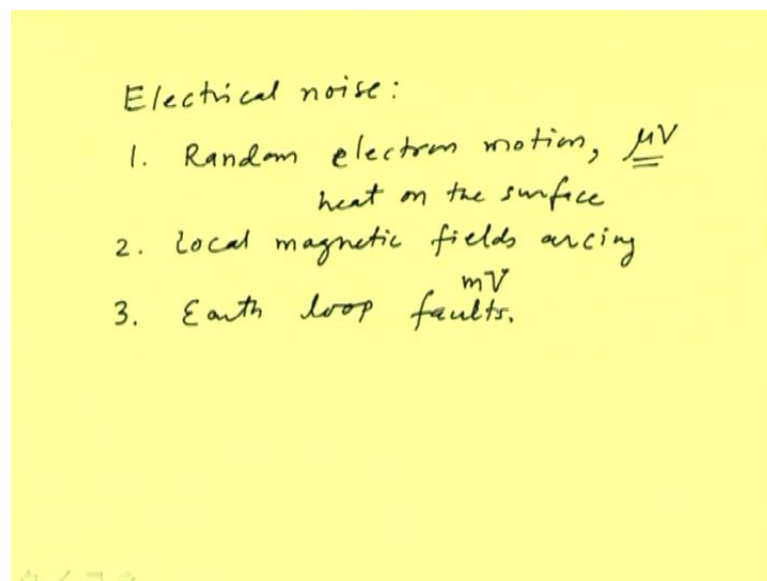 Electrical noise:
1. Random electron motion, μV
heat on the surface
2. Local magnetic fields arcing
mV
3. Earth loop faults.